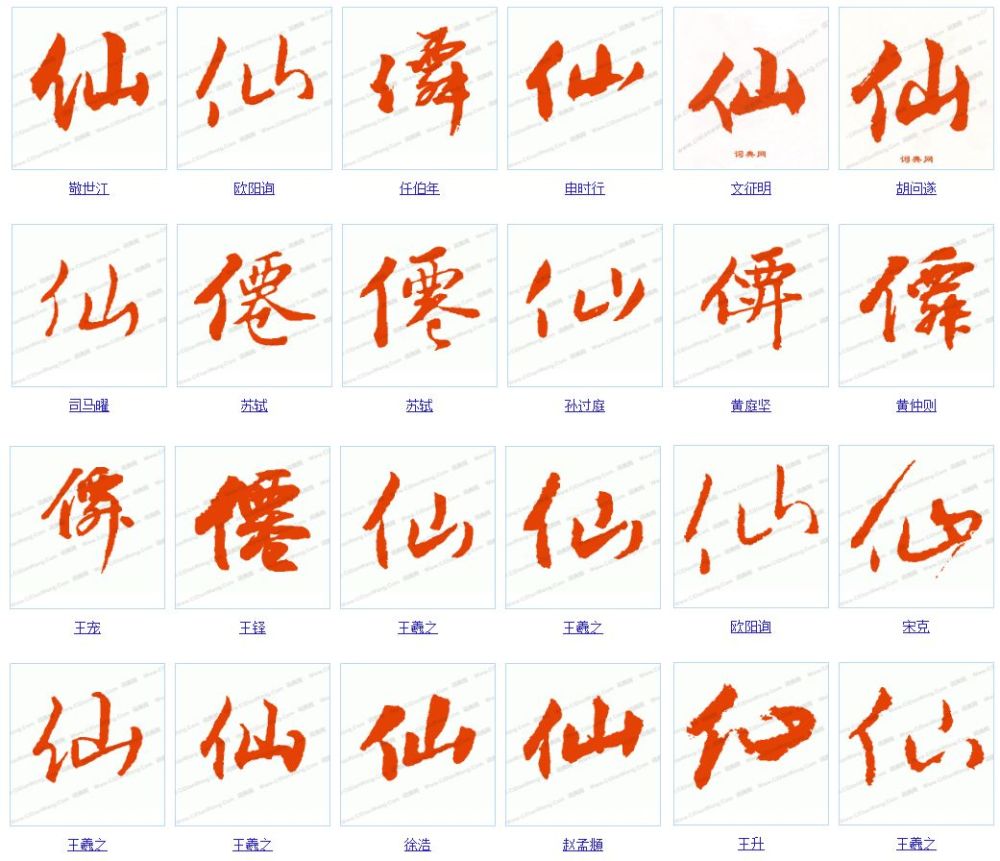 仙 仙 仙 仙 仙
词典网 词典网
敬世江 欧阳询 任伯年 申时行 文征明 胡问遂
仙 僊 僊 仙
司马曜 苏轼 苏轼 孙过庭 黄庭坚 黄仲则
僊 仙 仙 仙 仙
王宠 王铎 王羲之 王羲之 欧阳询 宋克
仙 仙 仙 仙 仙 仙
王羲之 王羲之 徐浩 赵孟頫 王升 王羲之